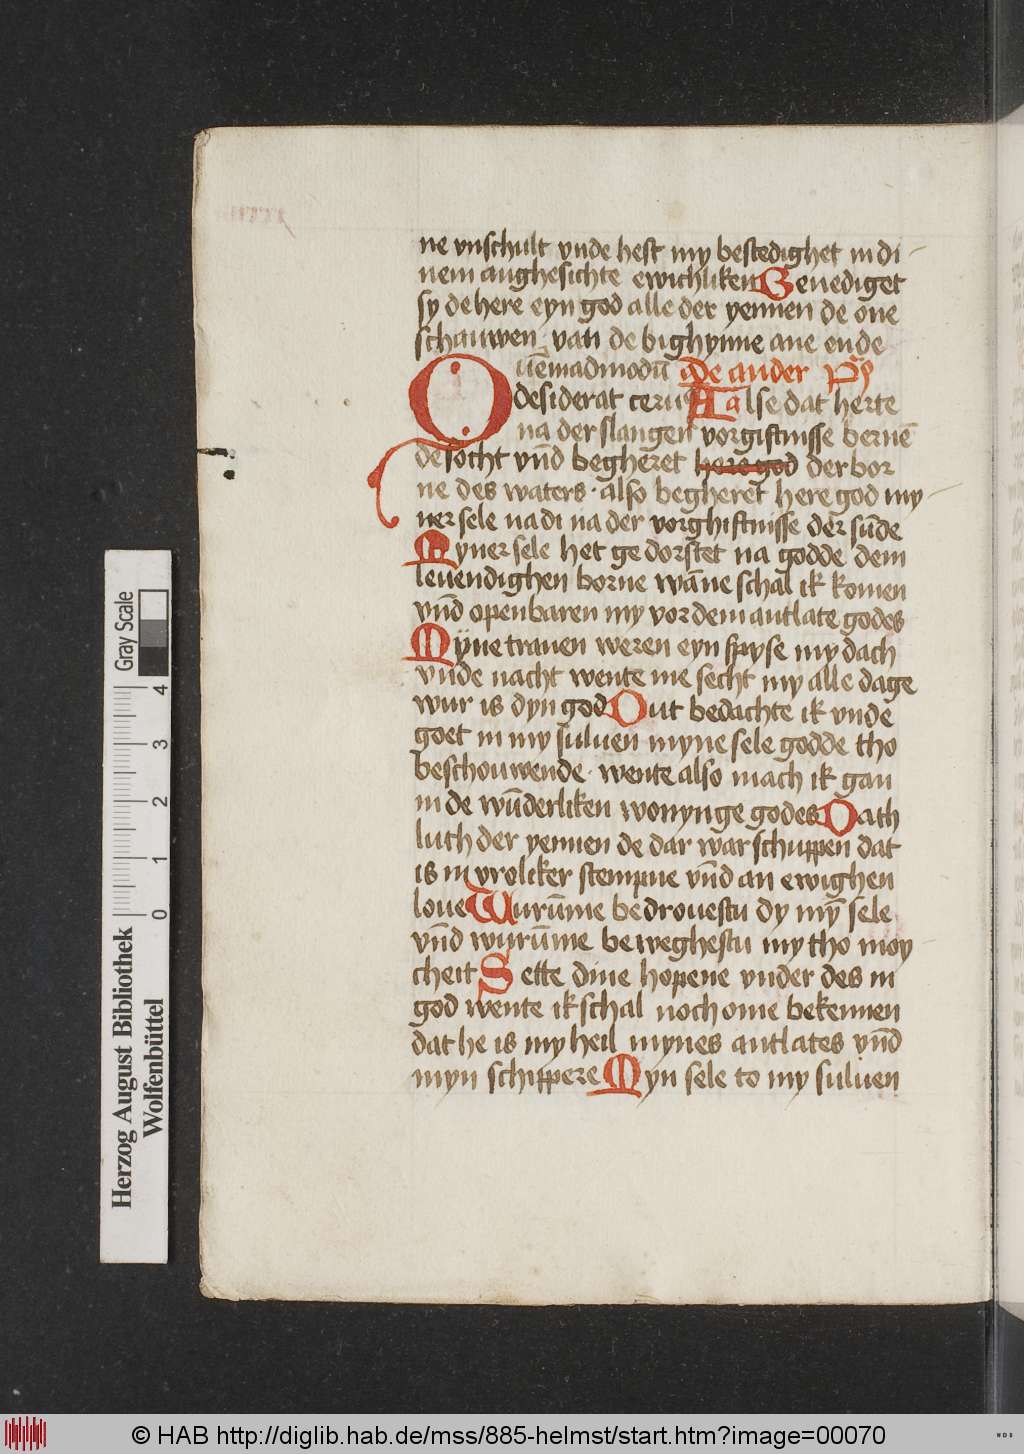 ne vnschult vnde hest my bestedighet in di
nem anghesichte ewichliken Genediget
sy de here eyn god alle der yennen de one
schauwen van de bighynne ane ende
Quēmadmodū De ander Ps
desiderat ceru Alse dat herte
na der slangen vorgiftnisse bernē
de socht vnd begheret here god der bor
ne des waters also begheret here god my
ner sele na di na der vorghiftnisse der sūde
Myner sele het ge dorstet na godde dem
leuendighen borne wāne schal ik komen
vnd openbaren my vor dem antlate godes
Myne tranen weren eyn spyse my dach
vnde nacht wente me secht my alle dage
wur is dyn god Dut bedachte ik vnde
goet in my suluen myne sele godde tho
beschouwende wente also mach ik gan
in de wūderliken wonynge godes Dath
luth der yennen de dar warschuppen dat
is in vroliker stempne vnd an ewighen
loue Wurūme bedrouestu dy mȳ sele
vnd wurūme beweghestu my tho moy
cheit Sette dine hopene vnder des in
god wente ik schal noch ome bekennen
dat he is my heil mynes antlates vnd
myn schippere Myn sele to my suluen
Gray Scale
4
3
2
1
0
Herzog August Bibliothek
Wolfenbüttel
© HAB http://diglib.hab.de/mss/885-helmst/start.htm?image=00070